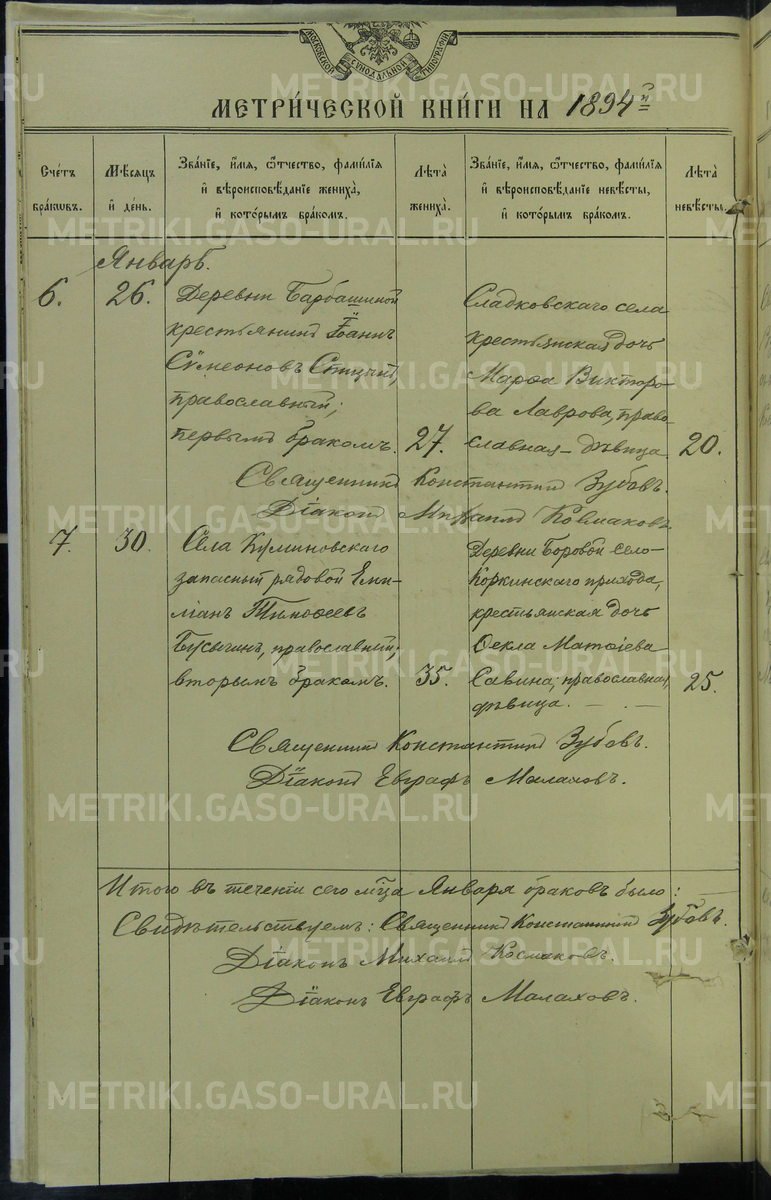 МОСКОВСКОЙ СѴНОДАЛЬНОЙ ТИПОГРАФІИ
МЕТРИ́ЧЕСКОЙ КНИ́ГИ НА 1894 й
Сче́тъ бра́кѡвъ.
Мѣ́сяцъ и҆ де́нь.
Зва́нїе, и҆́мѧ, ѻ҆́тчество, фами́лїѧ и҆ вѣроисповѣ́данїе жениха̀, и҆ кото́рымъ бра́комъ.
Лѣ́та жениха̀.
Зва́нїе, и҆́мѧ, ѻ҆́тчество, фами́лїѧ и҆ вѣроисповѣ́данїе невѣ́сты, и҆ кото́рымъ бра́комъ.
Лѣ́та невѣ́сты.
Январь.
6. 26. Деревни Барбашиной
крестьянинъ Іоаннъ
Сѵмеоновъ Спицынъ,
православный;
первымъ бракомъ. 27.
Сладковскаго села
крестьянская дочь
Марѳа Викторо-
ва Лаврова, право-
славная – дѣвица 20.
Священникъ Константинъ Зубовъ.
Діаконъ Михаилъ Космаковъ.
7. 30. Села Куминовскаго
запасный рядовой Еми-
ліанъ Тимоѳеевъ
Бусыгинъ, православный;
вторымъ бракомъ. 35.
Деревни Боровой село-
Коркинскаго прихода,
крестьянская дочь
Ѳекла Матѳіева
Савина; православная,
дѣвица. 25.
Священникъ Константинъ Зубовъ.
Діаконъ Евграфъ Малаховъ.
Итого въ теченіи сего мѣсца Января браковъ было:
Свидѣтельствуемъ: Священникъ Константинъ Зубовъ.
Діаконъ Михаилъ Космаковъ.
Діаконъ Евграфъ Малаховъ.
METRIKI.GASO-URAL.RU